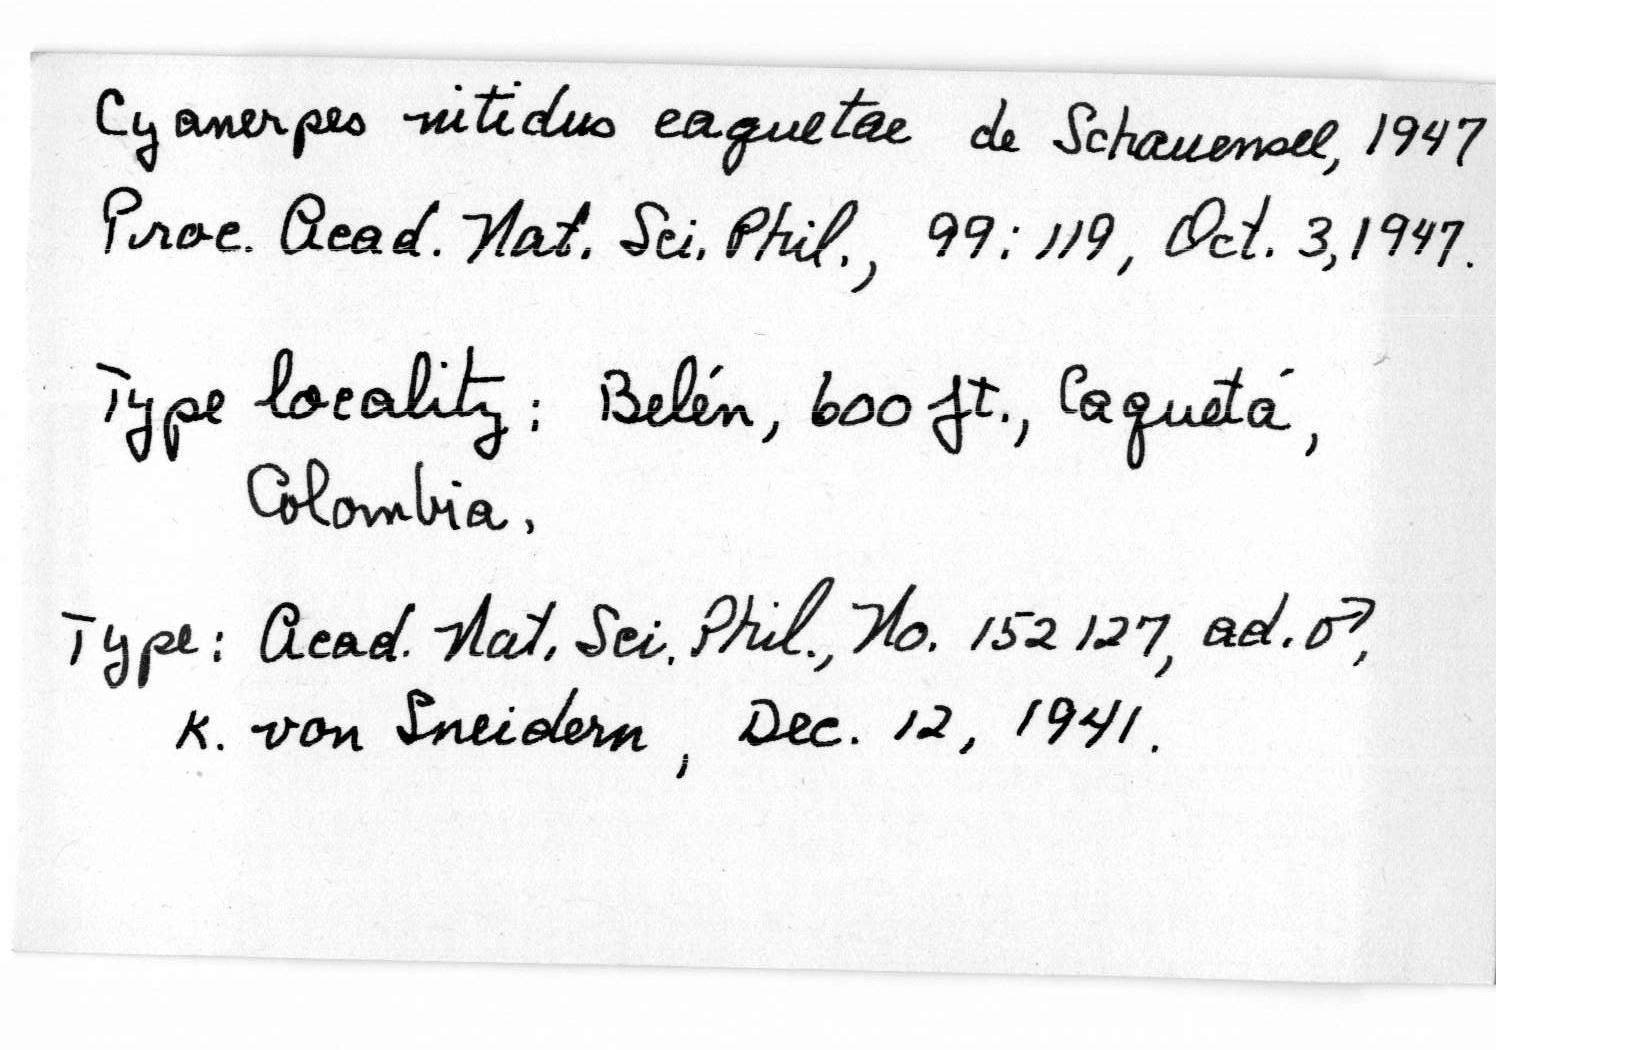 Cyanerpes nitidus caquetae de Schauensee, 1947
Proc. Acad. Nat. Sci. Phil., 99: 119, Oct. 3, 1947.
Type locality: Belén, 600 ft., Caquetá,
Colombia.
Type: Acad. Nat. Sci. Phil., No. 152127, ad. ♂,
K. von Sneidern, Dec. 12, 1941.